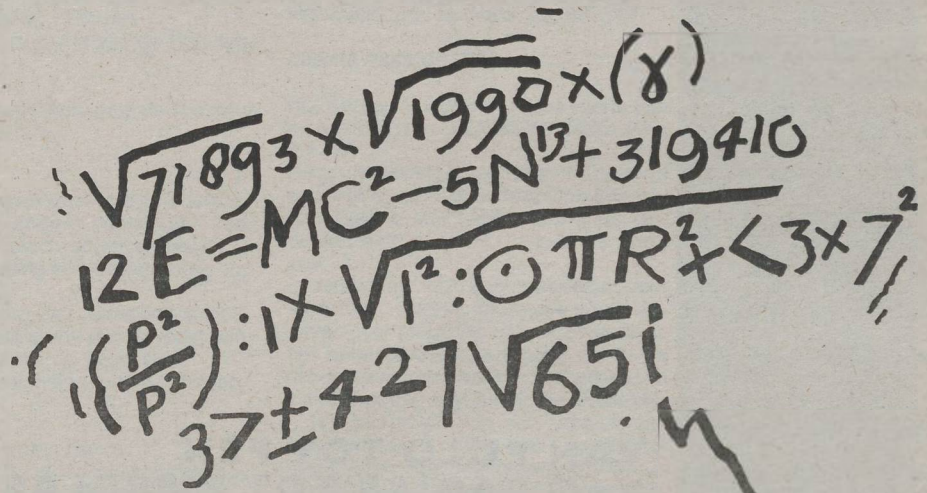 √71893 × √1990 × (γ)
12 E = MC² − 5N¹³ + 319410
(P²/P²) : 1 × √1² : ⊙ πR² × < 3 × 7²
37 ± 427 √65i